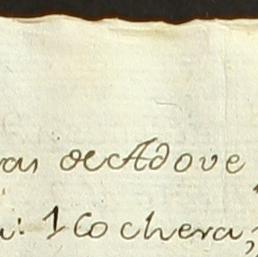 as de Adove
a: 1 Cochera,